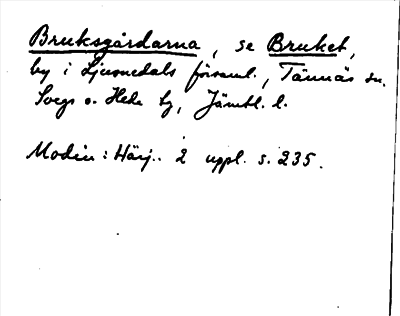 Bruksgårdarna, se Bruket,
by i Ljusnedals församl., Tännäs sn.
Svegs o. Hede tg, Jämtl. l.
Modin: Härj.. 2 uppl. s. 235.